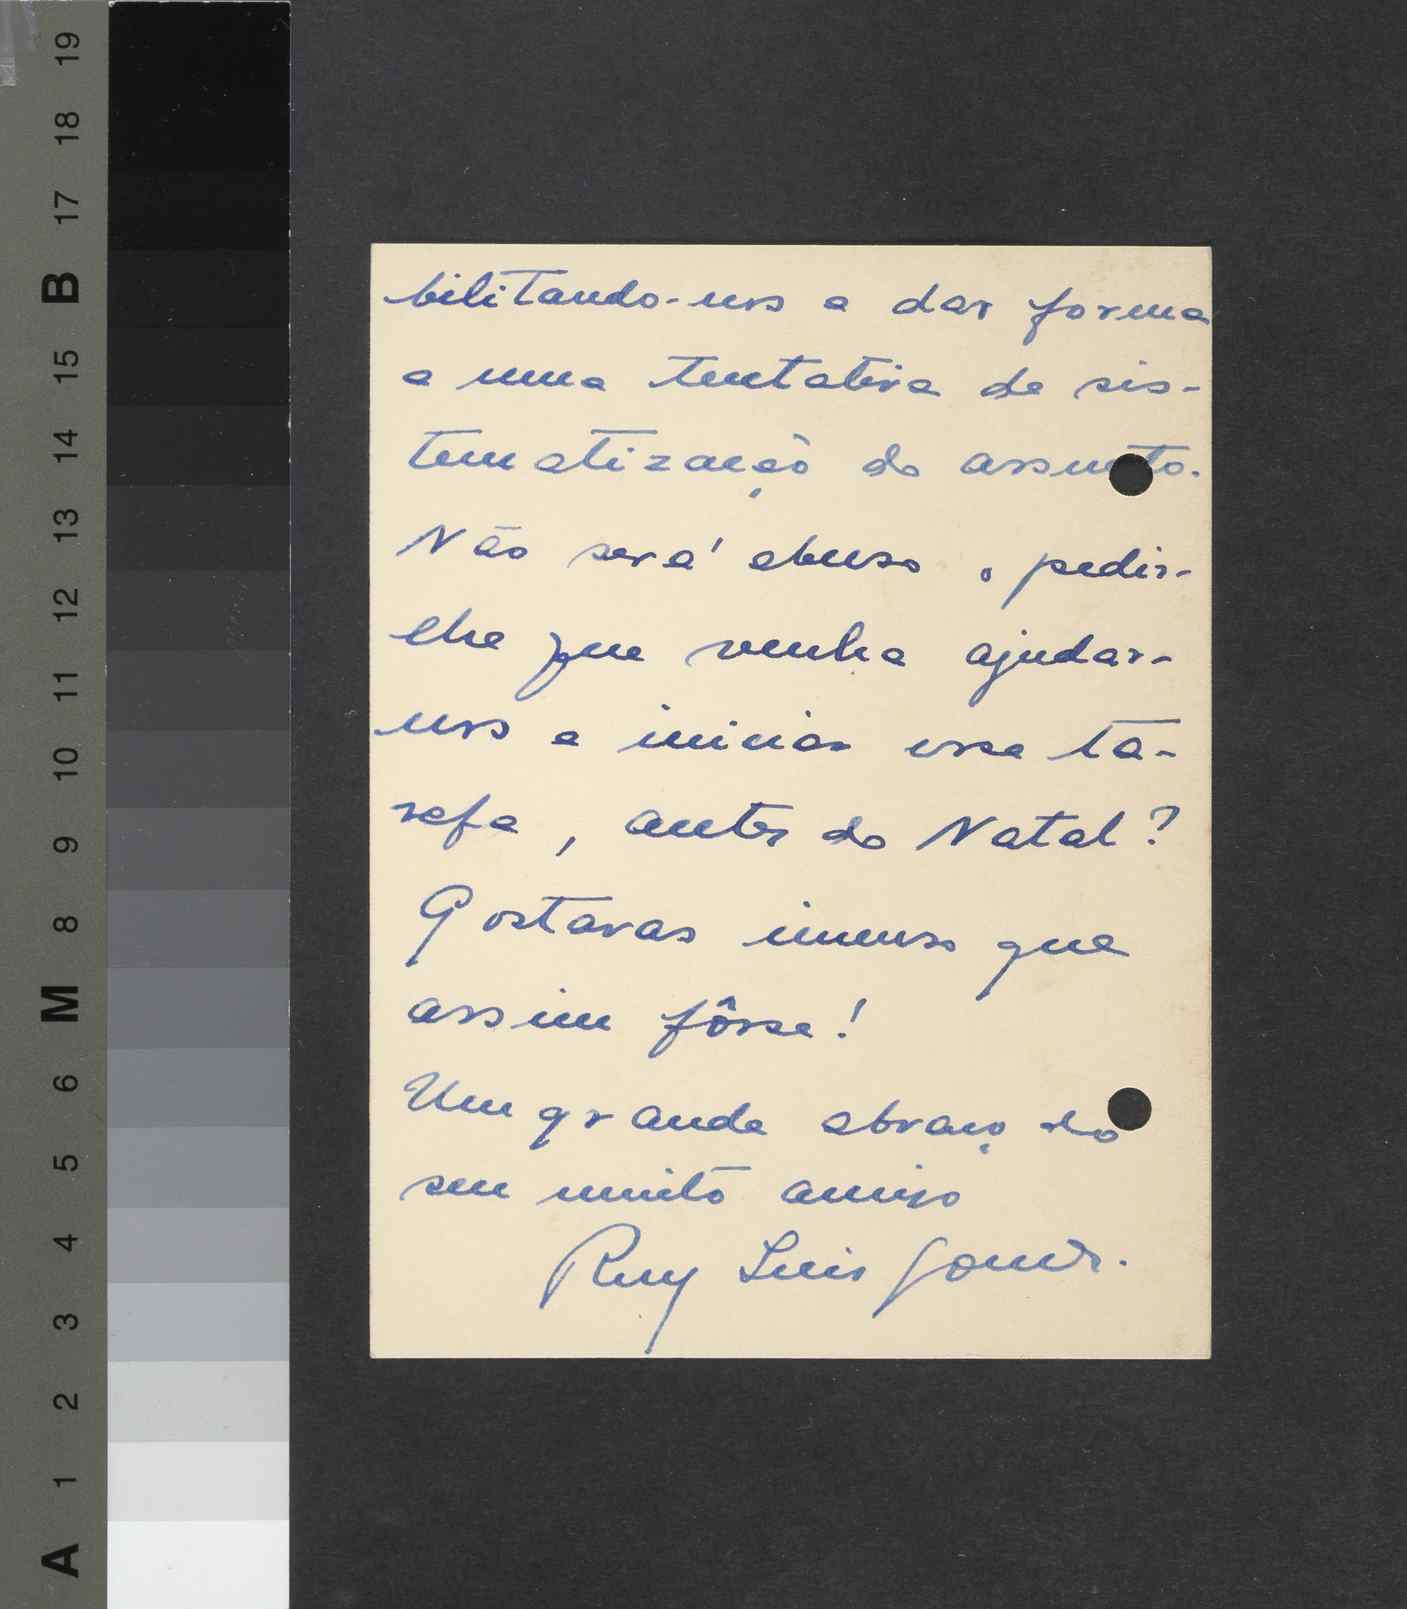 19
18
17
B
15
14
13
12
11
10
9
8
M
6
5
4
3
2
1
A
bilitando-nos a dar forma
a uma tentativa de sis-
tematização do assunto.
Não será abuso o pedir-
lhe que venha ajudar-
nos a iniciar essa ta-
refa, antes do Natal?
Gostavas imenso que
assim fôsse!
Um grande abraço do
seu muito amigo
Ruy Luis Gomes.